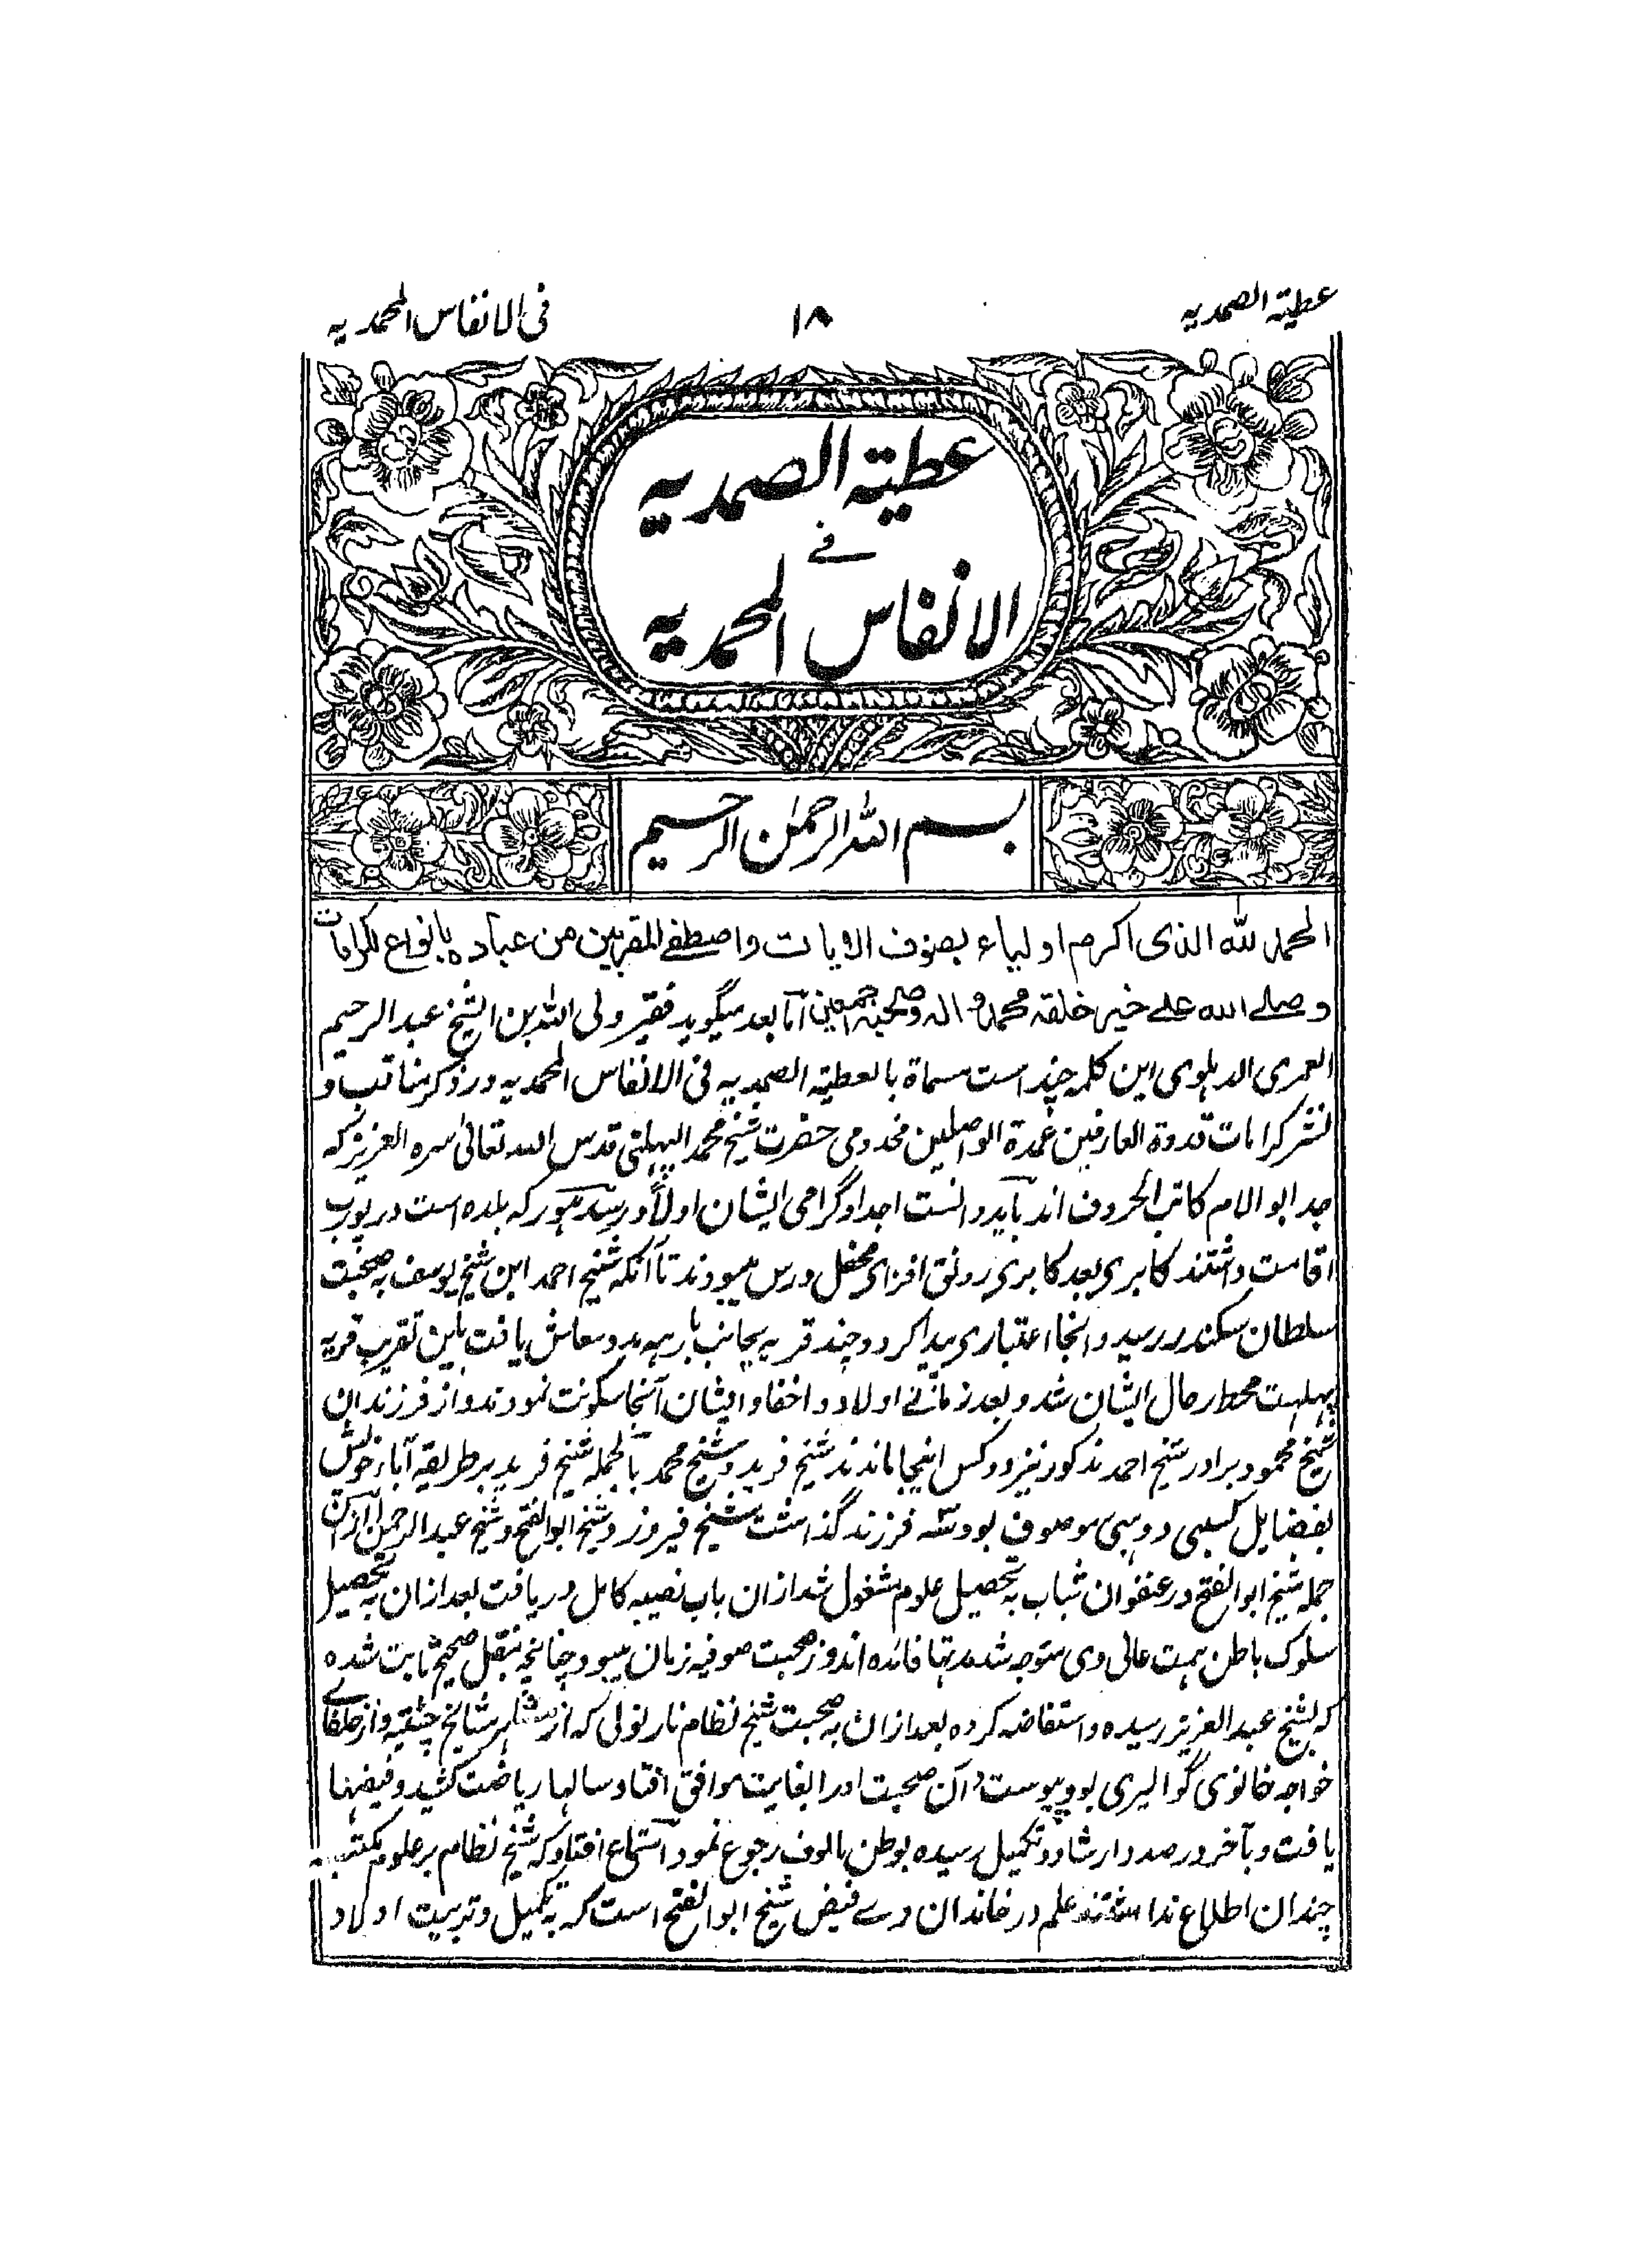 عطیة الصمدیه
۱۸
فی الانفاس المحمدیه
عطیة الصمدیه
فی
الانفاس المحمدیه
بسم اللہ الرحمٰن الرحیم
الحمد للہ الذی اکرم اولیاء بصنوف الایات واصطفے المقربین من عبادہ بانواع الکرامات
وصلے اللہ علے خیر خلقہ محمد و الہ وصحبہ اجمعین اما بعد میگوید فقیر ولی اللہ بن الشیخ عبد الرحیم
العمری الدہلوی این کلمہ چند است مسماة بالعطیة الصمدیہ فی الانفاس المحمدیہ در ذکر مناقب و
نشر کرامات قدوة العارفین عمدة الواصلین مخدومی حضرت شیخ محمد البہلتی قدس اللہ تعالیٰ سرہ العزیز کہ
جد ابو الام کاتب الحروف اند باید دانست اجداد گرامی ایشان اولاً در سدہور کہ بلدہ است در پورب
اقامت داشتند کابری بعد کابری رونق افزای محفل درس میبودند تا آنکہ شیخ احمد ابن شیخ یوسف بہ صحبت
سلطان سکندر رسید و آنجا اعتباری پیدا کرد و چند قریہ بجانب بارہہ مدد معاش یافت باین تقریب قریہ
پہلت محط رحال ایشان شد و بعد زمانے اولاد و احفاد ایشان آنجا سکونت نمودند و از فرزندان
شیخ محمود برادر شیخ احمد مذکور نیز دو کس اینجا ماندند شیخ فرید و شیخ محمد بالجملہ شیخ فرید بر طریقہ آباء خویش
بفضایل کسبی و وہبی موصوف بود و سہ فرزند گذاشت شیخ فیروز و شیخ ابو الفتح و شیخ عبد الرحمن از آن
جملہ شیخ ابو الفتح در عنفوان شباب بہ تحصیل علوم مشغول شد از ان باب نصیبہ کامل دریافت بعد از ان بہ تحصیل
سلوک باطن ہمت عالی وی متوجہ شد مدتہا فائدہ اندوز صحبت صوفیہ زمان میبود چنانچہ بنقل صحیح ثابت شدہ
کہ بشیخ عبد العزیز رسیدہ و استفاضہ کردہ بعد از ان بہ صحبت شیخ نظام نارنولی کہ از مشاہیر مشایخ چشتیہ و از خلفای
خواجہ خانوی گوالیری بود پیوست و آن صحبت او را بغایت موافق افتاد سالہا ریاضت کشید و فیضہا
یافت و بآخر در صدد ارشاد و تکمیل رسیدہ بوطن مالوف رجوع نمود استماع افتاد کہ شیخ نظام بر علوم مکتسبہ
چندان اطلاع نداشتند علم در خاندان وے فیض شیخ ابو الفتح است کہ بہ تکمیل و تربیت اولاد